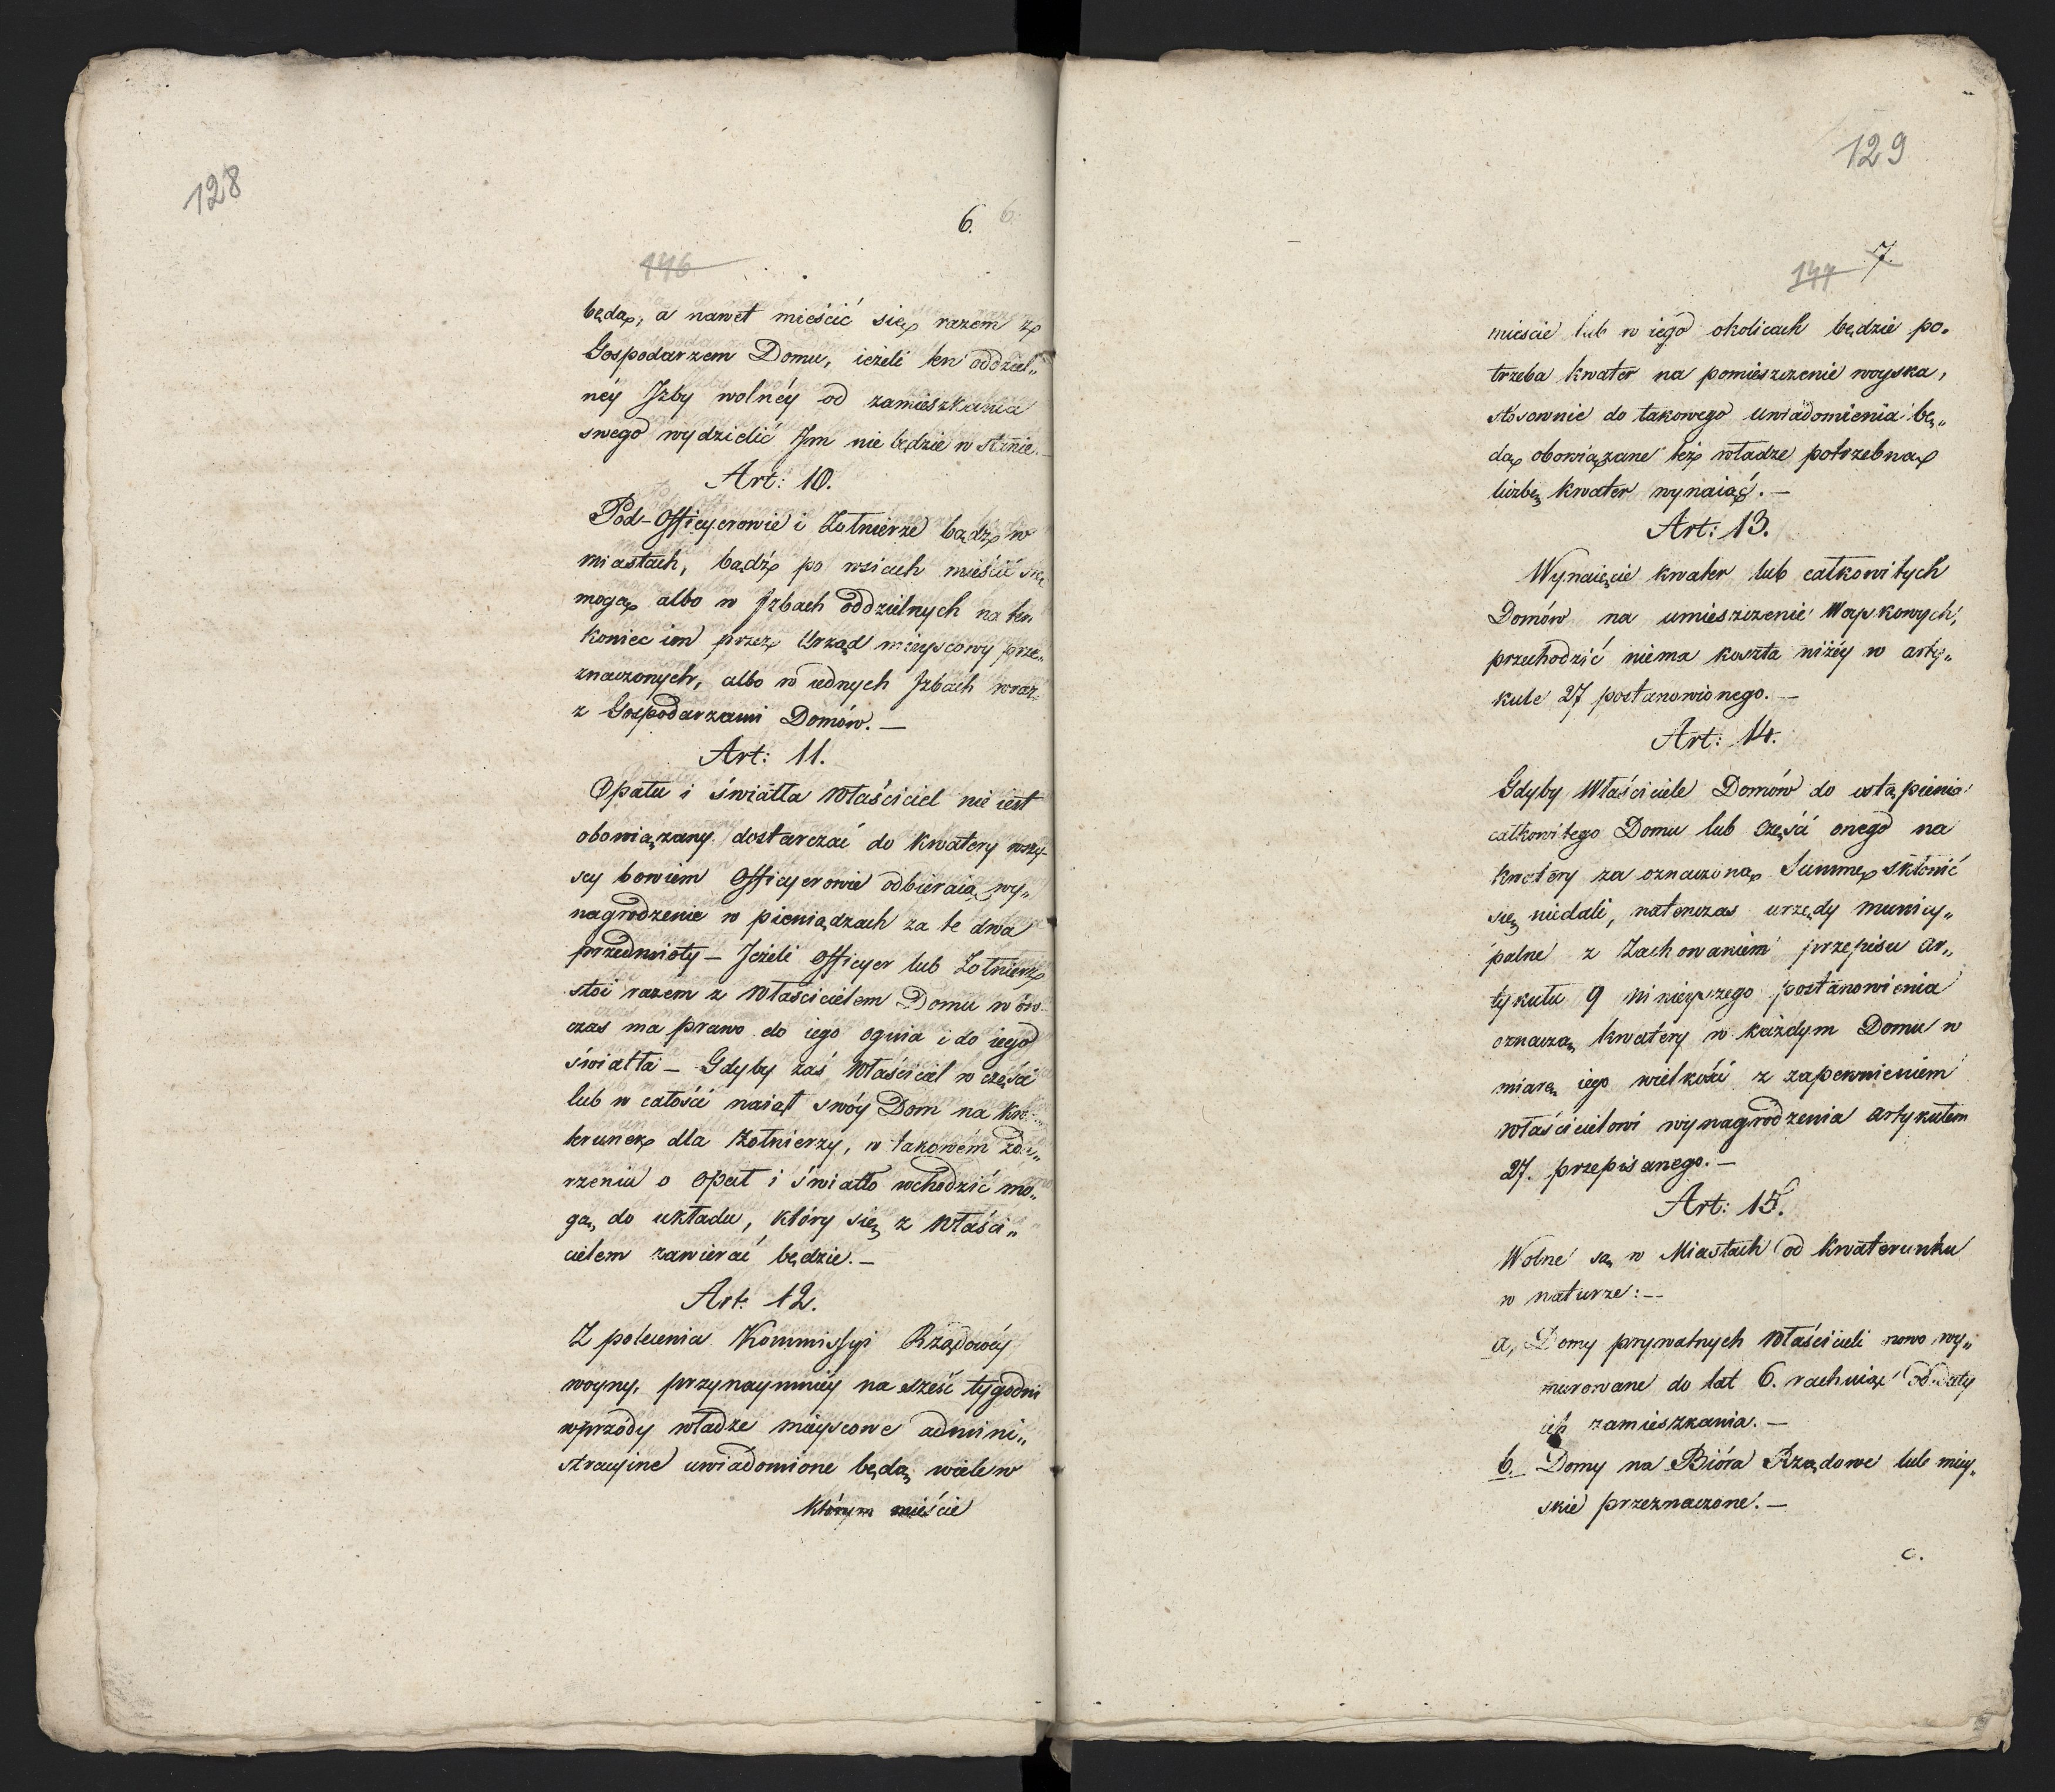 128
6. 6.
146
będą, a nawet mieścić się razem z
Gospodarzem Domu, ieżeli ten oddziel„
néy Izby wolnéy od zamieszkania
swego wydzielić Im nie będzie w stanie.
Art: 10.
Pod-Officyerowie i Żołnierze bądź w
miastach, bądź po wsiach mieścić się
mogą albo w Izbach oddzielnych na ten
koniec im przez Urząd mieyscowy prze„
znaczonych, albo w iednych Izbach wraz
z Gospodarzami Domów. —
Art: 11.
Opału i światła Właściciel nie iest
obowiązany dostarczać do kwatery wszy„
scy bowiem Officyerowie odbieraią wy„
nagrodzenie w pieniądzach za te dwa
przedmioty — Jeżeli Officyer lub Żołnierz
stoi razem z Właścicielem Domu w ów
czas ma prawo do iego ognia i do iego
światła — Gdyby zaś Właściciel w części
lub w całości naiął swóy Dom na kwa„
terunek dla żołnierzy, w takowém zda„
rzeniu o opał i światło wchodzić mo„
gą, do układu, który się z Właści„
cielem zawierać będzie. —
Art: 12.
Z polecenia Kommissyi Rządowéy
woyny, przynaymniéy na sześć tygodni
wprzódy władze mieyscowe admini„
stracyine uwiadomione będą, wiele w
którym mieście
129
7.
147
mieście lub w iego okolicach będzie po„
trzeba kwater na pomieszczenie woyska,
stosownie do takowego uwiadomienia bę„
dą obowiązane też władze potrzebną
liczbę kwater wynaiąć. —
Art: 13.
Wynaięcie kwater lub całkowitych
Domów na umieszczenie Woyskowych,
przechodzić niema koszta niżéy w arty„
kule 27 postanowionego. —
Art: 14.
Gdyby Właściciele Domów do ustąpienia
całkowitego Domu lub części onego na
kwatery za oznaczoną Summę skłonić
się niedali, natenczas urzędy municy„
palne z zachowaniem przepisu ar„
tykułu 9 ninieyszego postanowienia
oznaczą kwatery w każdym Domu w
miarę iego wielkości z zapewnieniem
właścicielowi wynagrodzenia artykułem
27. przepisanego. —
Art: 15.
Wolne są w Miastach od kwaterunku
w naturze: —
a, Domy prywatnych Właścicieli nowo wy„
murowane do lat 6. rachuiąc od daty
ich zamieszkania. —
b. Domy na Bióra Rządowe lub miey„
skie przeznaczone. —
c.